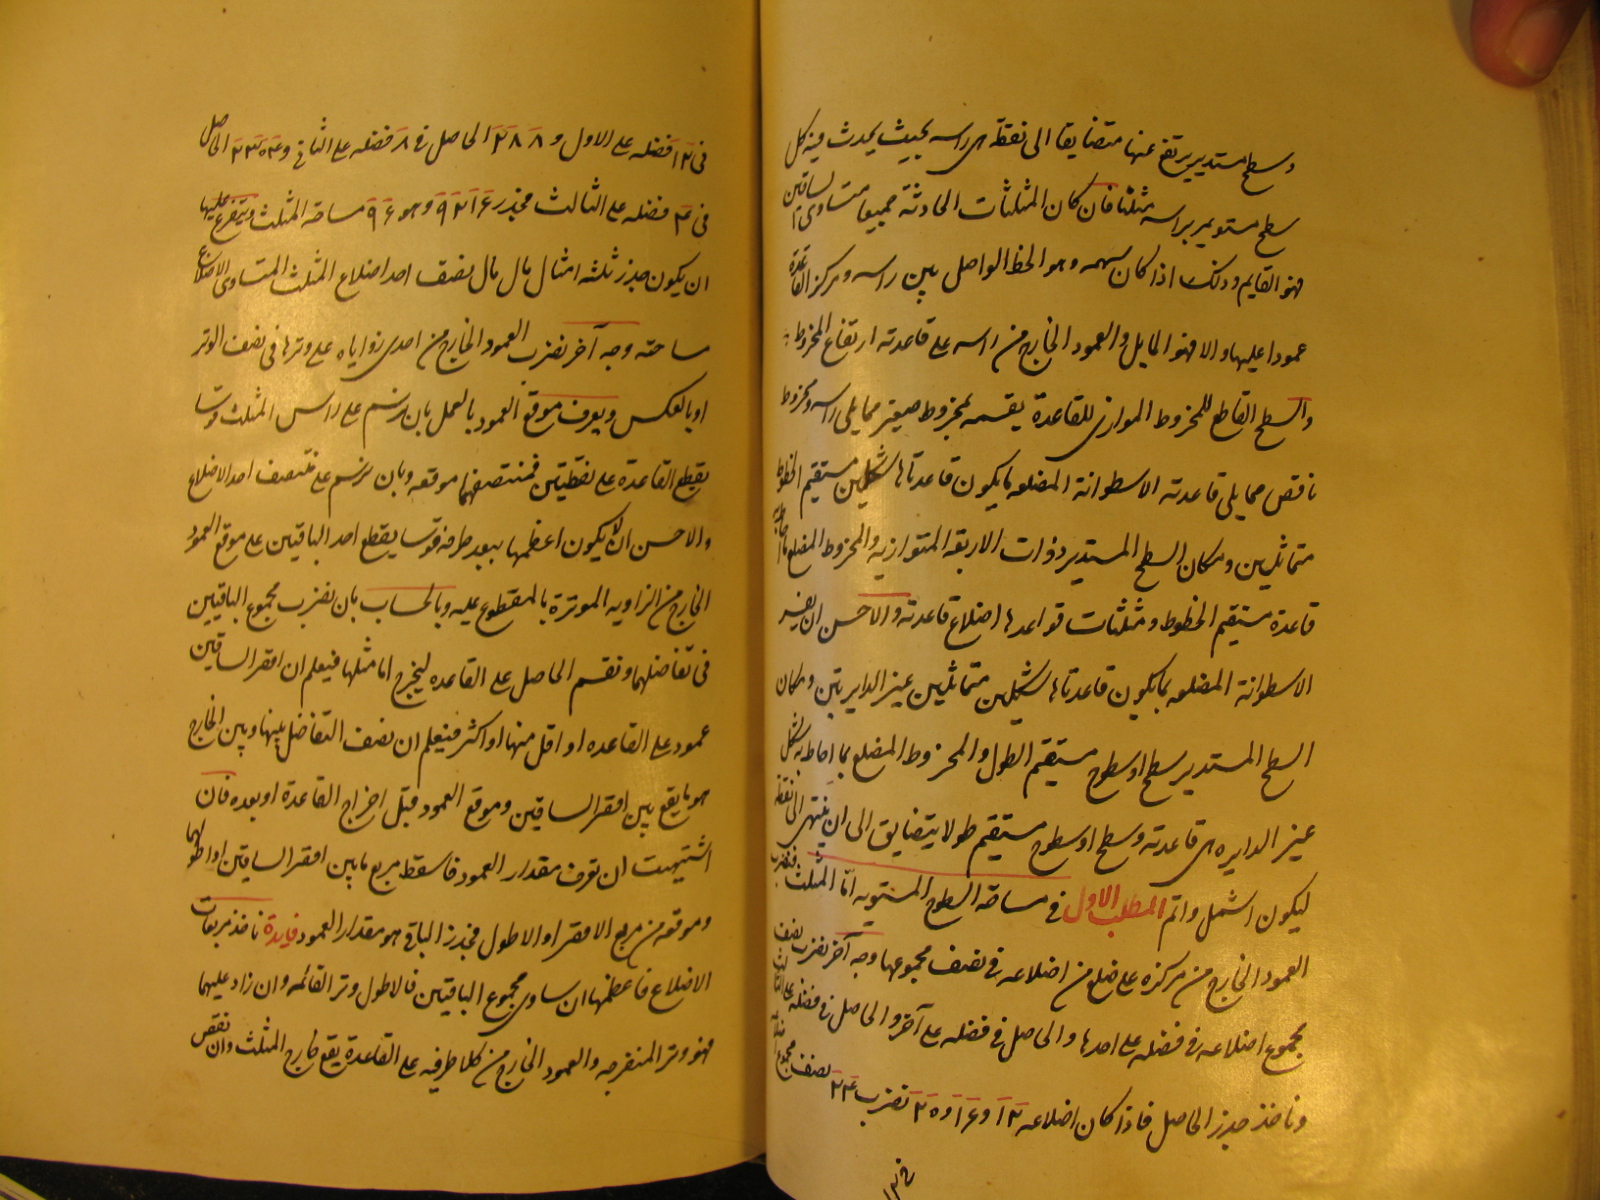 وسطح مستدير يرتفع عنها متضايقا الى نقطة هى راسه بحيث يحدث فيه كل
سطح مستو يمر براسه مثلثا فان كان المثلثات الحادثة جميعا متساوى الساقين
فهو القايم وذلك اذا كان سهمه وهو الخط الواصل بين راسه ومركز القاعدة
عمودا عليها والا فهو المايل والعمود الخارج من راسه على قاعدته ارتفاع المخروط
والسطح القاطع للمخروط الموازى للقاعدة يقسمه بمخروط صغير مما يلى راسه ومخروط
ناقص مما يلى قاعدته الاسطوانة المضلعه ما يكون قاعدتاها شكلين مستقيم الخطوط
متماثلين ومكان السطح المستدير ذوات الاربعة المتوازيه والمخروط المضلع ما احاط به
قاعدة مستقيم الخطوط ومثلثات قواعدها اضلاع قاعدته والاحسن ان يفسر
الاسطوانة المضلعه بما يكون قاعدتاها شكلين متماثلين غير الدايريتين ومكان
السطح المستدير سطح او سطوح مستقيم الطول والمخروط المضلع بما احاط به شكل
غير الدايره هى قاعدته وسطح او سطوح مستقيم طولا يتضايق الى ان ينتهى الى نقطة
ليكون اشمل واتم المطلب الاول فى مساحة السطوح المستويه اما المثلث فتضرب
العمود الخارج من مركزه على ضلع من اضلاعه فى نصف مجموعها وجه آخر نضرب نصف
مجموع اضلاعه فى فضله على احدها والحاصل فى فضله على آخر والحاصل فى فضله على الثالث
وناخذ جذر الحاصل فاذا كان اضلاعه ١٢ و١٦ و٢٠ نضرب ٢٤ نصف مجموع
فى ١٢ فضله على الاول و ٢٨٨ الحاصل فى ٨ فضله على الثانى و ٢٣٠٤ الحاصل
فى ٤ فضله على الثالث فجذر ٩٢١٦ وهو ٩٦ مساحة المثلث ويتفرع عليها
ان يكون جذر ثلثة امثال مال مال نصف احد اضلاع المثلث المتساوى الاضلاع
مساحته وجه آخر نضرب العمود الخارج من احدى زواياه على وترها فى نصف الوتر
او بالعكس ويعرف موقع العمود بالعمل بان نرسم على راس المثلث قوسا
يقطع القاعدة على نقطتين فمنتصفهما موقعه وبان نرسم على منتصف احد الاضلاع
والاحسن ان لا يكون اعظمها ببعد طرفه قوسا يقطع احد الباقيين على موقع العمود
الخارج من الزاويه الموترة بالمقطوع عليه وبالحساب بان نضرب مجموع الباقيين
فى تفاضلهما ونقسم الحاصل على القاعده ليخرج اما مثلها فيعلم ان اقصر الساقين
عمود على القاعده او اقل منها او اكثر فنيعلم ان نصف التفاضل بينها وبين الخارج
هو ما يقع بين اقصر الساقين وموقع العمود قبل اخراج القاعدة او بعده فان
اشتهيت ان تعرف مقدار العمود فاسقط مربع ما بين اقصر الساقين او اطولهما
وموقعه من مربع الاقصر او الاطول فجذر الباقى هو مقدار العمود فايدة ناخذ مربعات
الاضلاع فاعظمها ان ساوى مجموع الباقيين فالاطول وتر القائمه وان زاد عليهما
فهو وتر المنفرجه والعمود الخارج من كلا طرفيه على القاعدة يقع خارج المثلث وان نقص